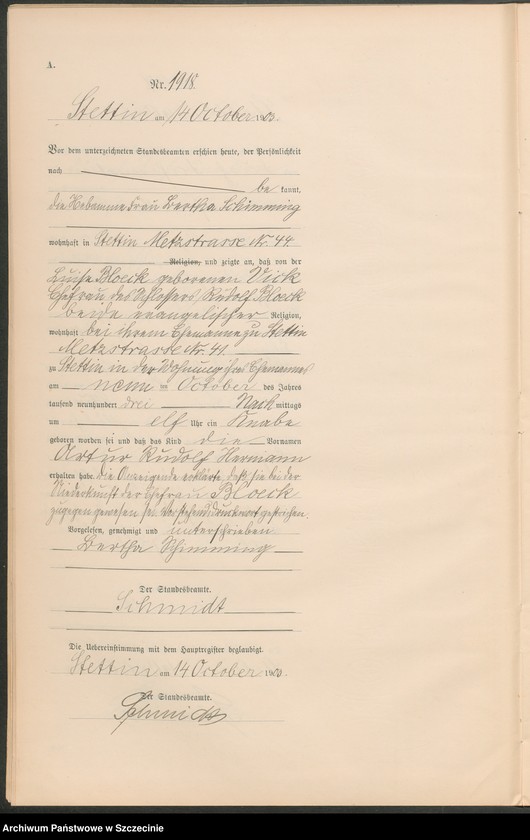 A.
Nr. 1918
Stettin am 14 October 1903.
Vor dem unterzeichneten Standesbeamten erschien heute, der Persönlichkeit
nach
be kannt,
die Hebamme Frau Bertha Schimming
wohnhaft in Stettin Metzstrasse Nr. 44
Religion, und zeigte an, daß von der
Luise Bloeck geborenen Vick
Ehefrau des Schlossers Rudolf Bloeck
beide evangelischer Religion,
wohnhaft bei ihrem Ehemanne zu Stettin
Metzstrasse Nr. 41.
zu Stettin in der Wohnung ihres Ehemannes
am neun ten October des Jahres
tausend neunhundert drei Nach mittags
um elf Uhr ein Knabe
geboren worden sei und daß das Kind die Vornamen
Artur Rudolf Hermann
erhalten habe. Die Anzeigende erklärte, daß sie bei der
Niederkunft der Ehefrau Bloeck
zugegen gewesen sei. Vorstehend Druckwort gestrichen
Vorgelesen, genehmigt und unterschrieben
Bertha Schimming
Der Standesbeamte.
Schmidt
Die Uebereinstimmung mit dem Hauptregister beglaubigt.
Stettin am 14 October 1903.
Der Standesbeamte.
Schmidt
Archiwum Państwowe w Szczecinie